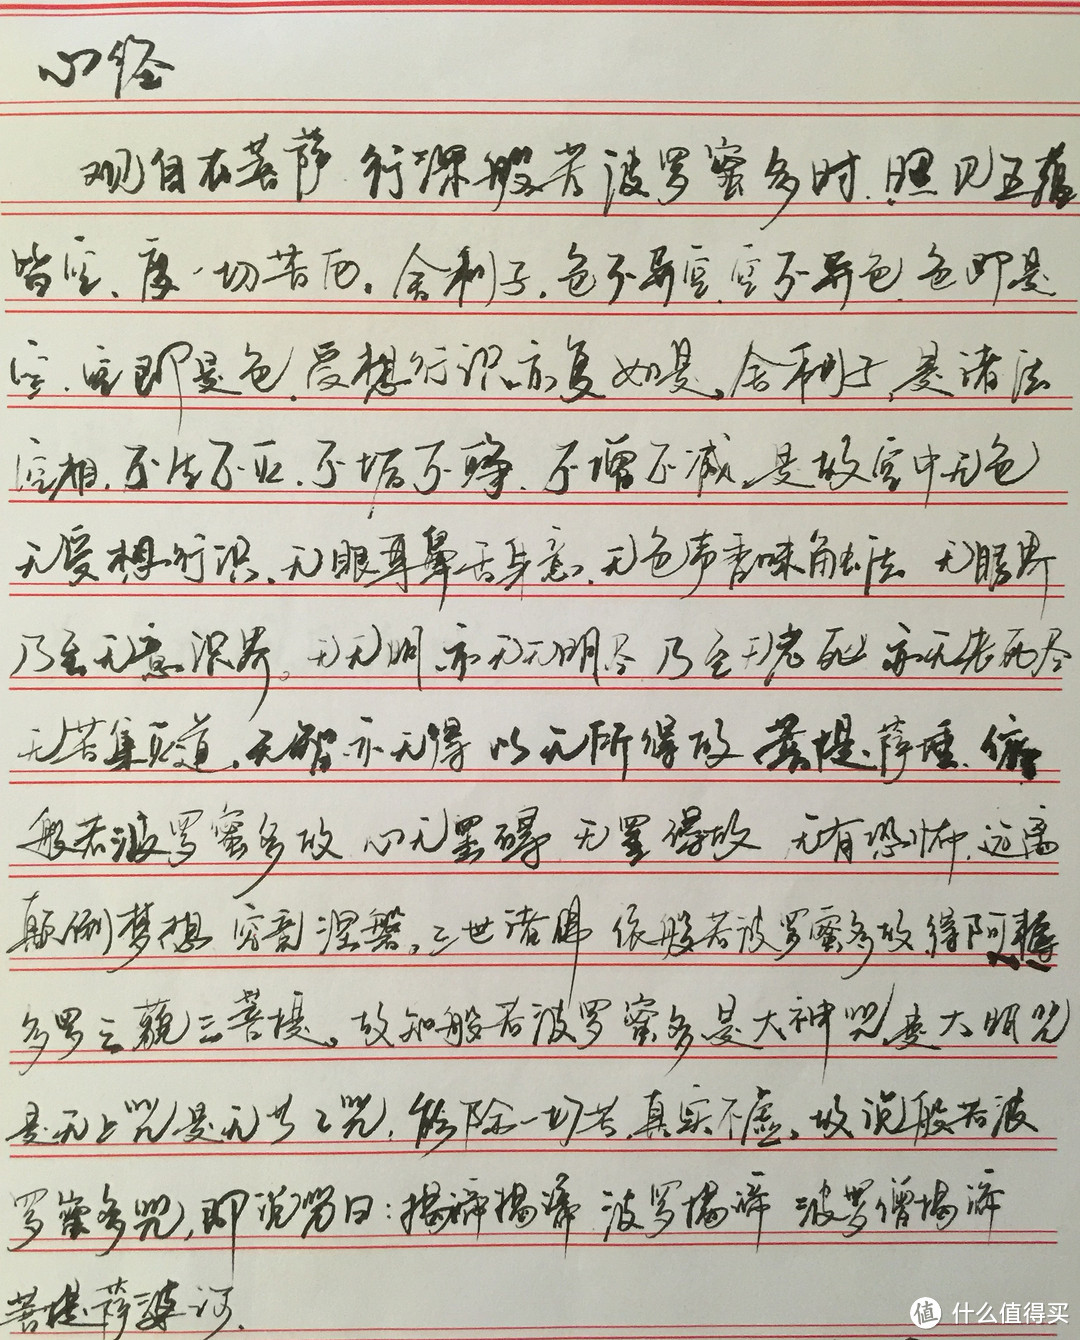 心经
观自在菩萨 行深般若波罗蜜多时、照见五蕴
皆空、度一切苦厄。舍利子、色不异空、空不异色、色即是
空、空即是色、受想行识、亦复如是。舍利子、是诸法
空相、不生不灭、不垢不净、不增不减、是故空中无色
无受想行识、无眼耳鼻舌身意、无色声香味触法 无眼界
乃至无意识界。无无明 亦无无明尽 乃至无老死 亦无老死尽
无苦集灭道、无智亦无得 以无所得故 菩提萨埵、依
般若波罗蜜多故 心无罣碍 无罣碍故 无有恐怖、远离
颠倒梦想 究竟涅槃。三世诸佛 依般若波罗蜜多故、得阿耨
多罗三藐三菩提。故知般若波罗蜜多是大神咒、是大明咒
是无上咒是无等等咒、能除一切苦、真实不虚、故说般若波
罗蜜多咒，即说咒曰：揭谛揭谛 波罗揭谛 波罗僧揭谛
菩提萨婆诃.
值 什么值得买